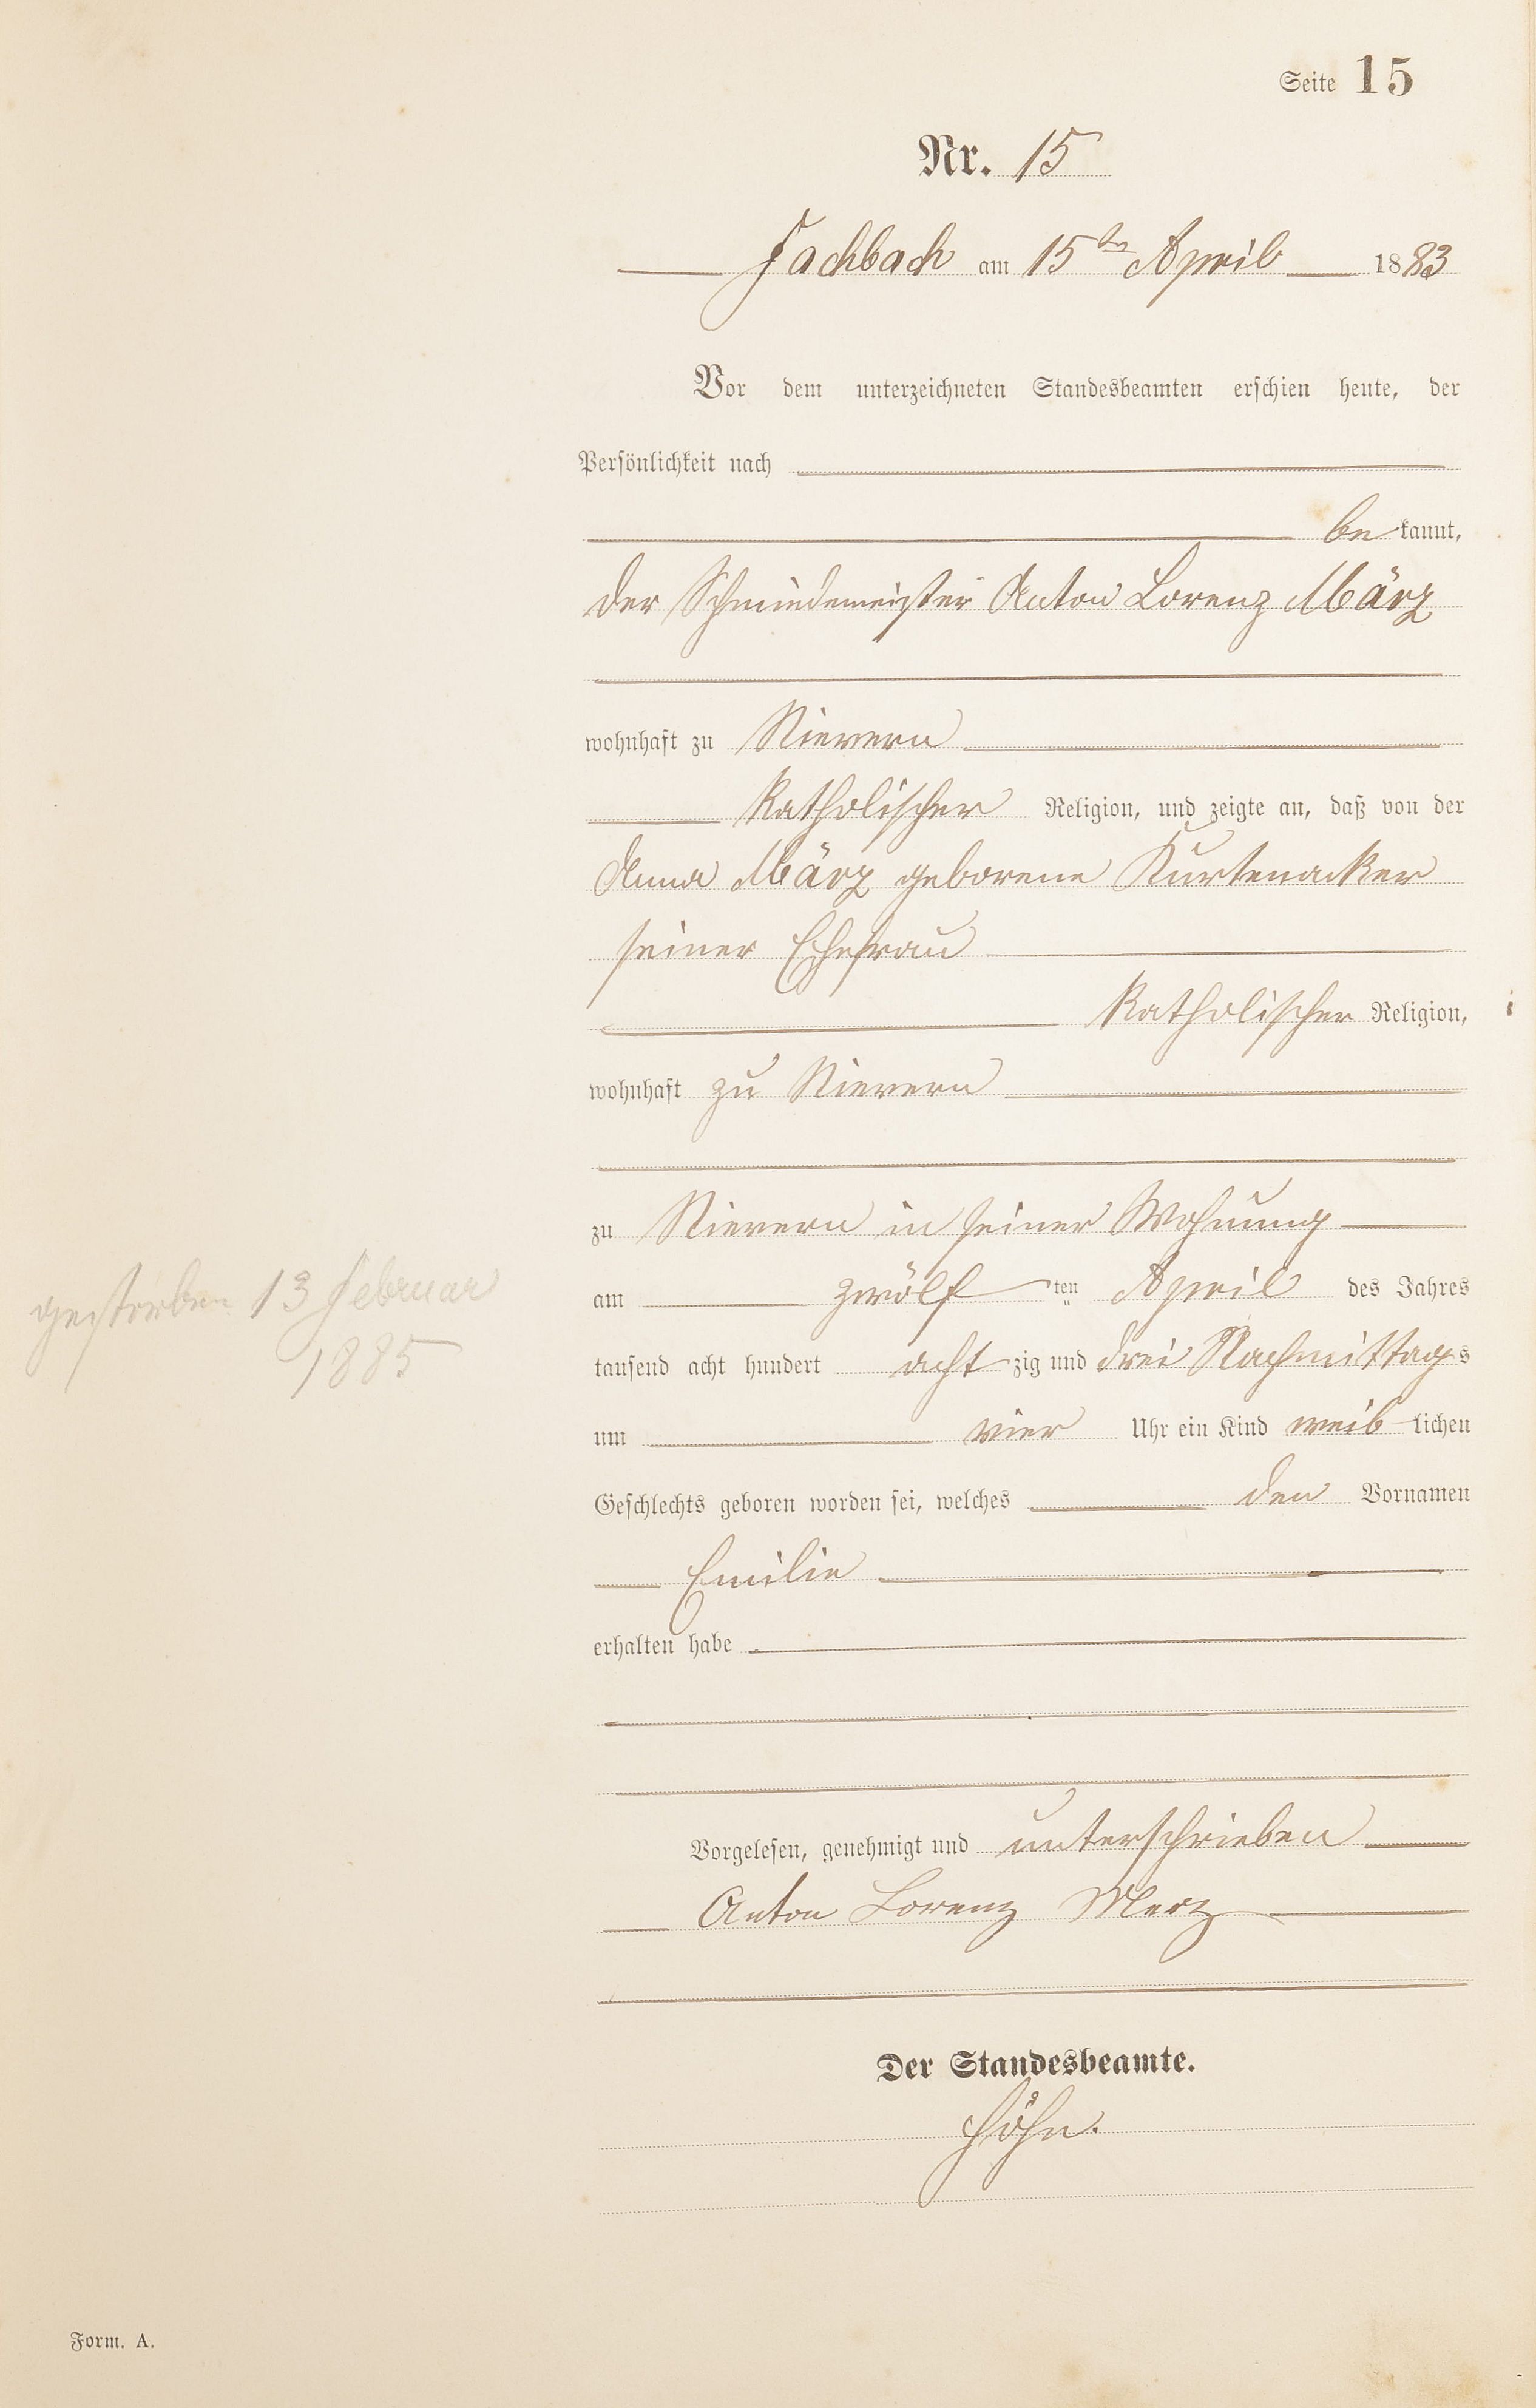 Seite 15
Nr. 15
Fachbach am 15ten April 1883
Vor dem unterzeichneten Standesbeamten erschien heute, der
Persönlichkeit nach
be kannt,
der Schmiedemeister Anton Lorenz März
wohnhaft zu Nievern
katholischer Religion, und zeigte an, daß von der
Anna März geborene Kurtenacker
seiner Ehefrau
katholischer Religion,
wohnhaft zu Nievern
zu Nievern in seiner Wohnung
am zwölf ten April des Jahres
tausend acht hundert acht zig und drei Nachmittags
um vier Uhr ein Kind weib lichen
Geschlechts geboren worden sei, welches den Vornamen
Emilie
erhalten habe
gestorben 13 Februar
1885
Vorgelesen, genehmigt und unterschrieben
Anton Lorenz Merz
Der Standesbeamte.
Höhn.
Form. A.